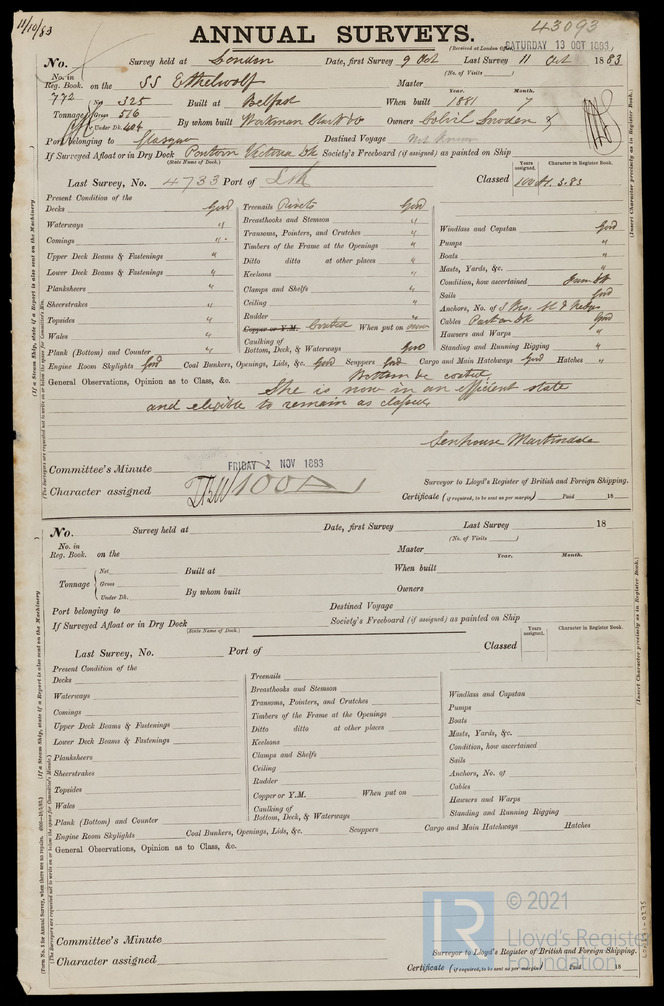 11/10/83
43093
ANNUAL SURVEYS.
(Received at London Office
SATURDAY 13 OCT 1883
No. Survey held at London Date, first Survey 9 Oct Last Survey 11 Oct 1883
(No. of Visits )
No. in Reg. Book. on the SS Ethelwolf Master
772 Year. Month.
Net 325 Built at Belfast When built 1881 7
Tonnage Gross 516
Under Dk. 404 By whom built Workman Clark & Co Owners
Port belonging to Glasgow Destined Voyage Not Known
If Surveyed Afloat or in Dry Dock Pontoon Victoria Dk Society's Freeboard (if assigned) as painted on Ship
(State Name of Dock.)
Years assigned. Character in Register Book.
Last Survey, No. 4733 Port of Lth Classed 100A1. 3.83
Present Condition of the
Decks Good
Waterways "
Comings "
Upper Deck Beams & Fastenings "
Lower Deck Beams & Fastenings "
Planksheers "
Sheerstrakes "
Topsides "
Wales "
Plank (Bottom) and Counter "
Treenails Rivets Good
Breasthooks and Stemson "
Transoms, Pointers, and Crutches "
Timbers of the Frame at the Openings "
Ditto ditto at other places "
Keelsons "
Clamps and Shelfs "
Ceiling "
Rudder "
Copper or Y.M. Coated When put on
Caulking of Bottom, Deck, & Waterways Good
Windlass and Capstan Good
Pumps "
Boats "
Masts, Yards, &c. "
Condition, how ascertained From Dk
Sails Good
Anchors, No. of
Cables Part on Dk Good
Hawsers and Warps "
Standing and Running Rigging "
Engine Room Skylights Good Coal Bunkers, Openings, Lids, &c. Good Scuppers Good Cargo and Main Hatchways Good Hatches "
Bottom be coated
General Observations, Opinion as to Class, &c. She is now in an efficient state
and eligible to remain as classed,
Senhouse Martindale
Committee's Minute FRIDAY 2 NOV 1883
Surveyor to Lloyd's Register of British and Foreign Shipping.
Character assigned 100A
Certificate (if required, to be sent as per margin) Paid 18
(If a Steam Ship, state if a Report is also sent on the Machinery
(Insert Character precisely as in Register Book.)
No. Survey held at Date, first Survey Last Survey 18
(No. of Visits )
No. in Reg. Book. on the Master
Year. Month.
Net Built at When built
Tonnage Gross
Under Dk. By whom built Owners
Port belonging to Destined Voyage
If Surveyed Afloat or in Dry Dock Society's Freeboard (if assigned) as painted on Ship
(State Name of Dock.)
Years assigned. Character in Register Book.
Last Survey, No. Port of Classed
Present Condition of the
Decks
Waterways
Comings
Upper Deck Beams & Fastenings
Lower Deck Beams & Fastenings
Planksheers
Sheerstrakes
Topsides
Wales
Plank (Bottom) and Counter
Treenails
Breasthooks and Stemson
Transoms, Pointers, and Crutches
Timbers of the Frame at the Openings
Ditto ditto at other places
Keelsons
Clamps and Shelfs
Ceiling
Rudder
Copper or Y.M. When put on
Caulking of Bottom, Deck, & Waterways
Windlass and Capstan
Pumps
Boats
Masts, Yards, &c.
Condition, how ascertained
Sails
Anchors, No. of
Cables
Hawsers and Warps
Standing and Running Rigging
Engine Room Skylights Coal Bunkers, Openings, Lids, &c. Scuppers Cargo and Main Hatchways Hatches
General Observations, Opinion as to Class, &c.
Committee's Minute
Surveyor to Lloyd's Register of British and Foreign Shipping.
Character assigned
Certificate (if required, to be sent as per margin) Paid 18
(If a Steam Ship, state if a Report is also sent on the Machinery
(Insert Character precisely as in Register Book.)
LR
© 2021
Lloyd's Register
Foundation